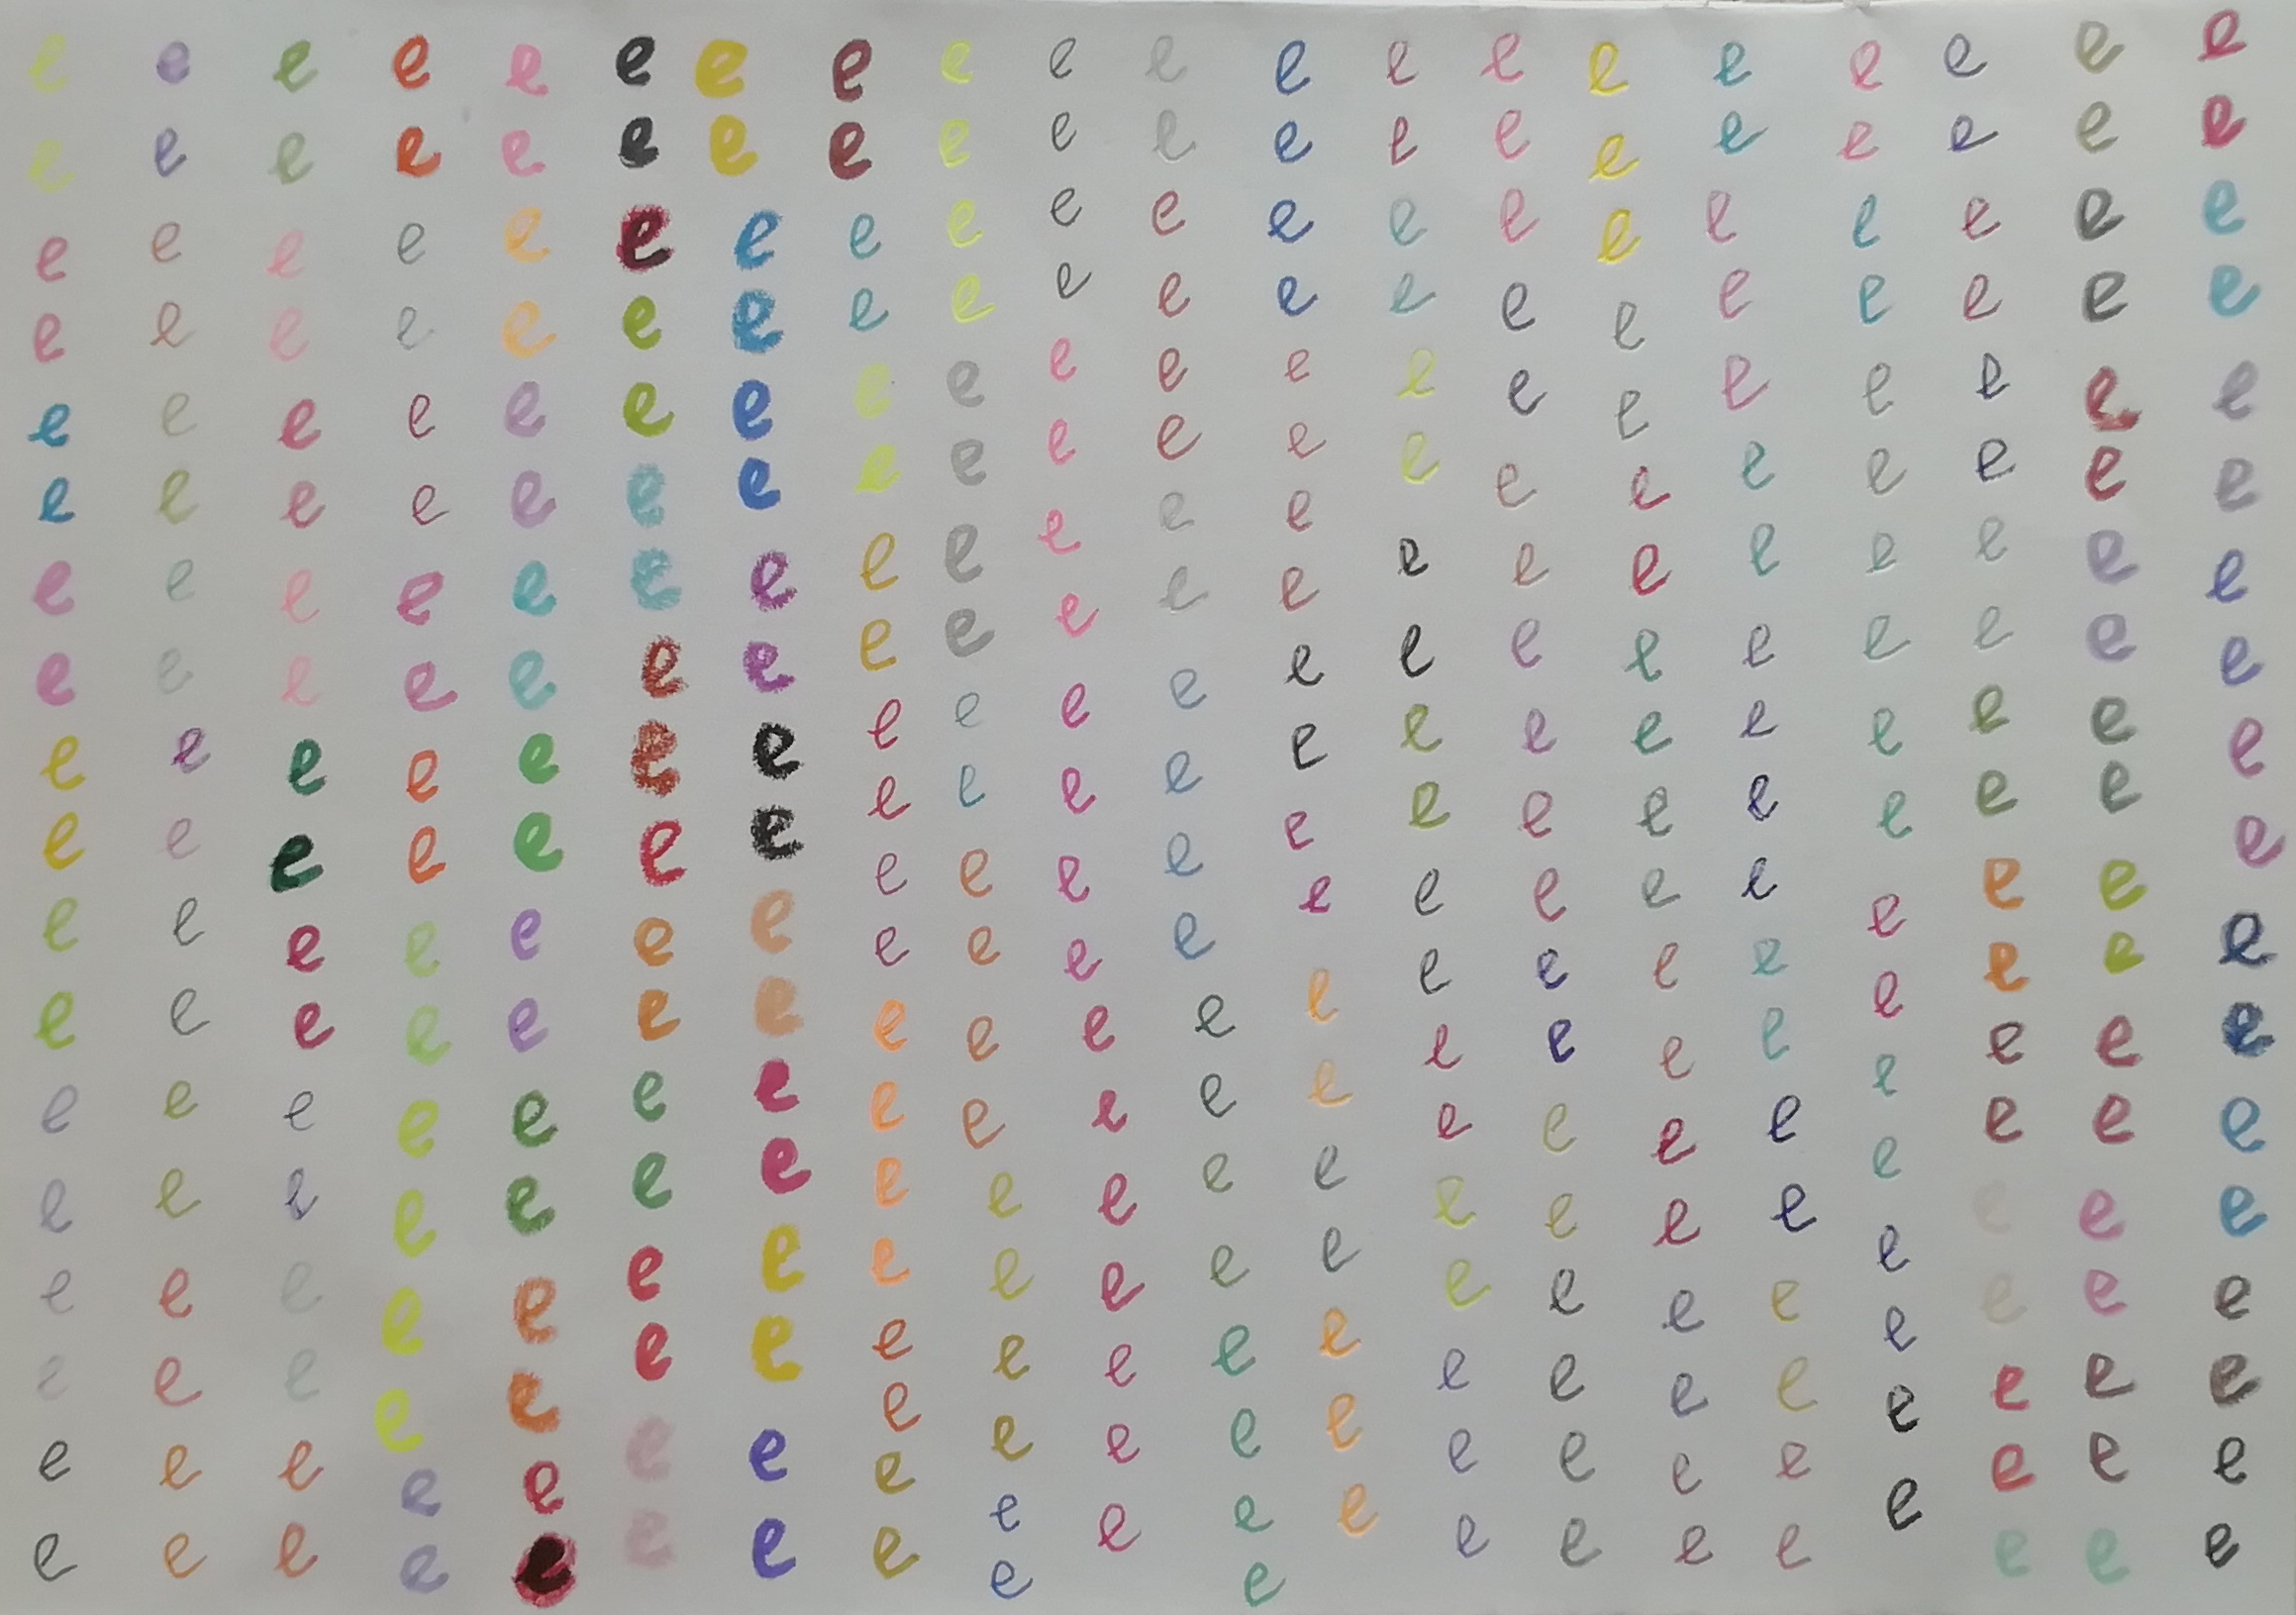 e e e e e e e e e e e e e e e e e e e e
e e e e e e e e e e e e e e e e e e e e
e e e e e e e e e e e e e e e e e e e e
e e e e e e e e e e e e e e e e e e e e
e e e e e e e e e e e e e e e e e e e e
e e e e e e e e e e e e e e e e e e e e
e e e e e e e e e e e e e e e e e e e e
e e e e e e e e e e e e e e e e e e e e
e e e e e e e e e e e e e e e e e e e e
e e e e e e e e e e e e e e e e e e e e
e e e e e e e e e e e e e e e e e e e e
e e e e e e e e e e e e e e e e e e e e
e e e e e e e e e e e e e e e e e e e e
e e e e e e e e e e e e e e e e e e e e
e e e e e e e e e e e e e e e e e e e e
e e e e e e e e e e e e e e e e e e e e
e e e e e e e e e e e e e e e e e e e e
e e e e e e e e e e e e e e e e e e e e
e e e